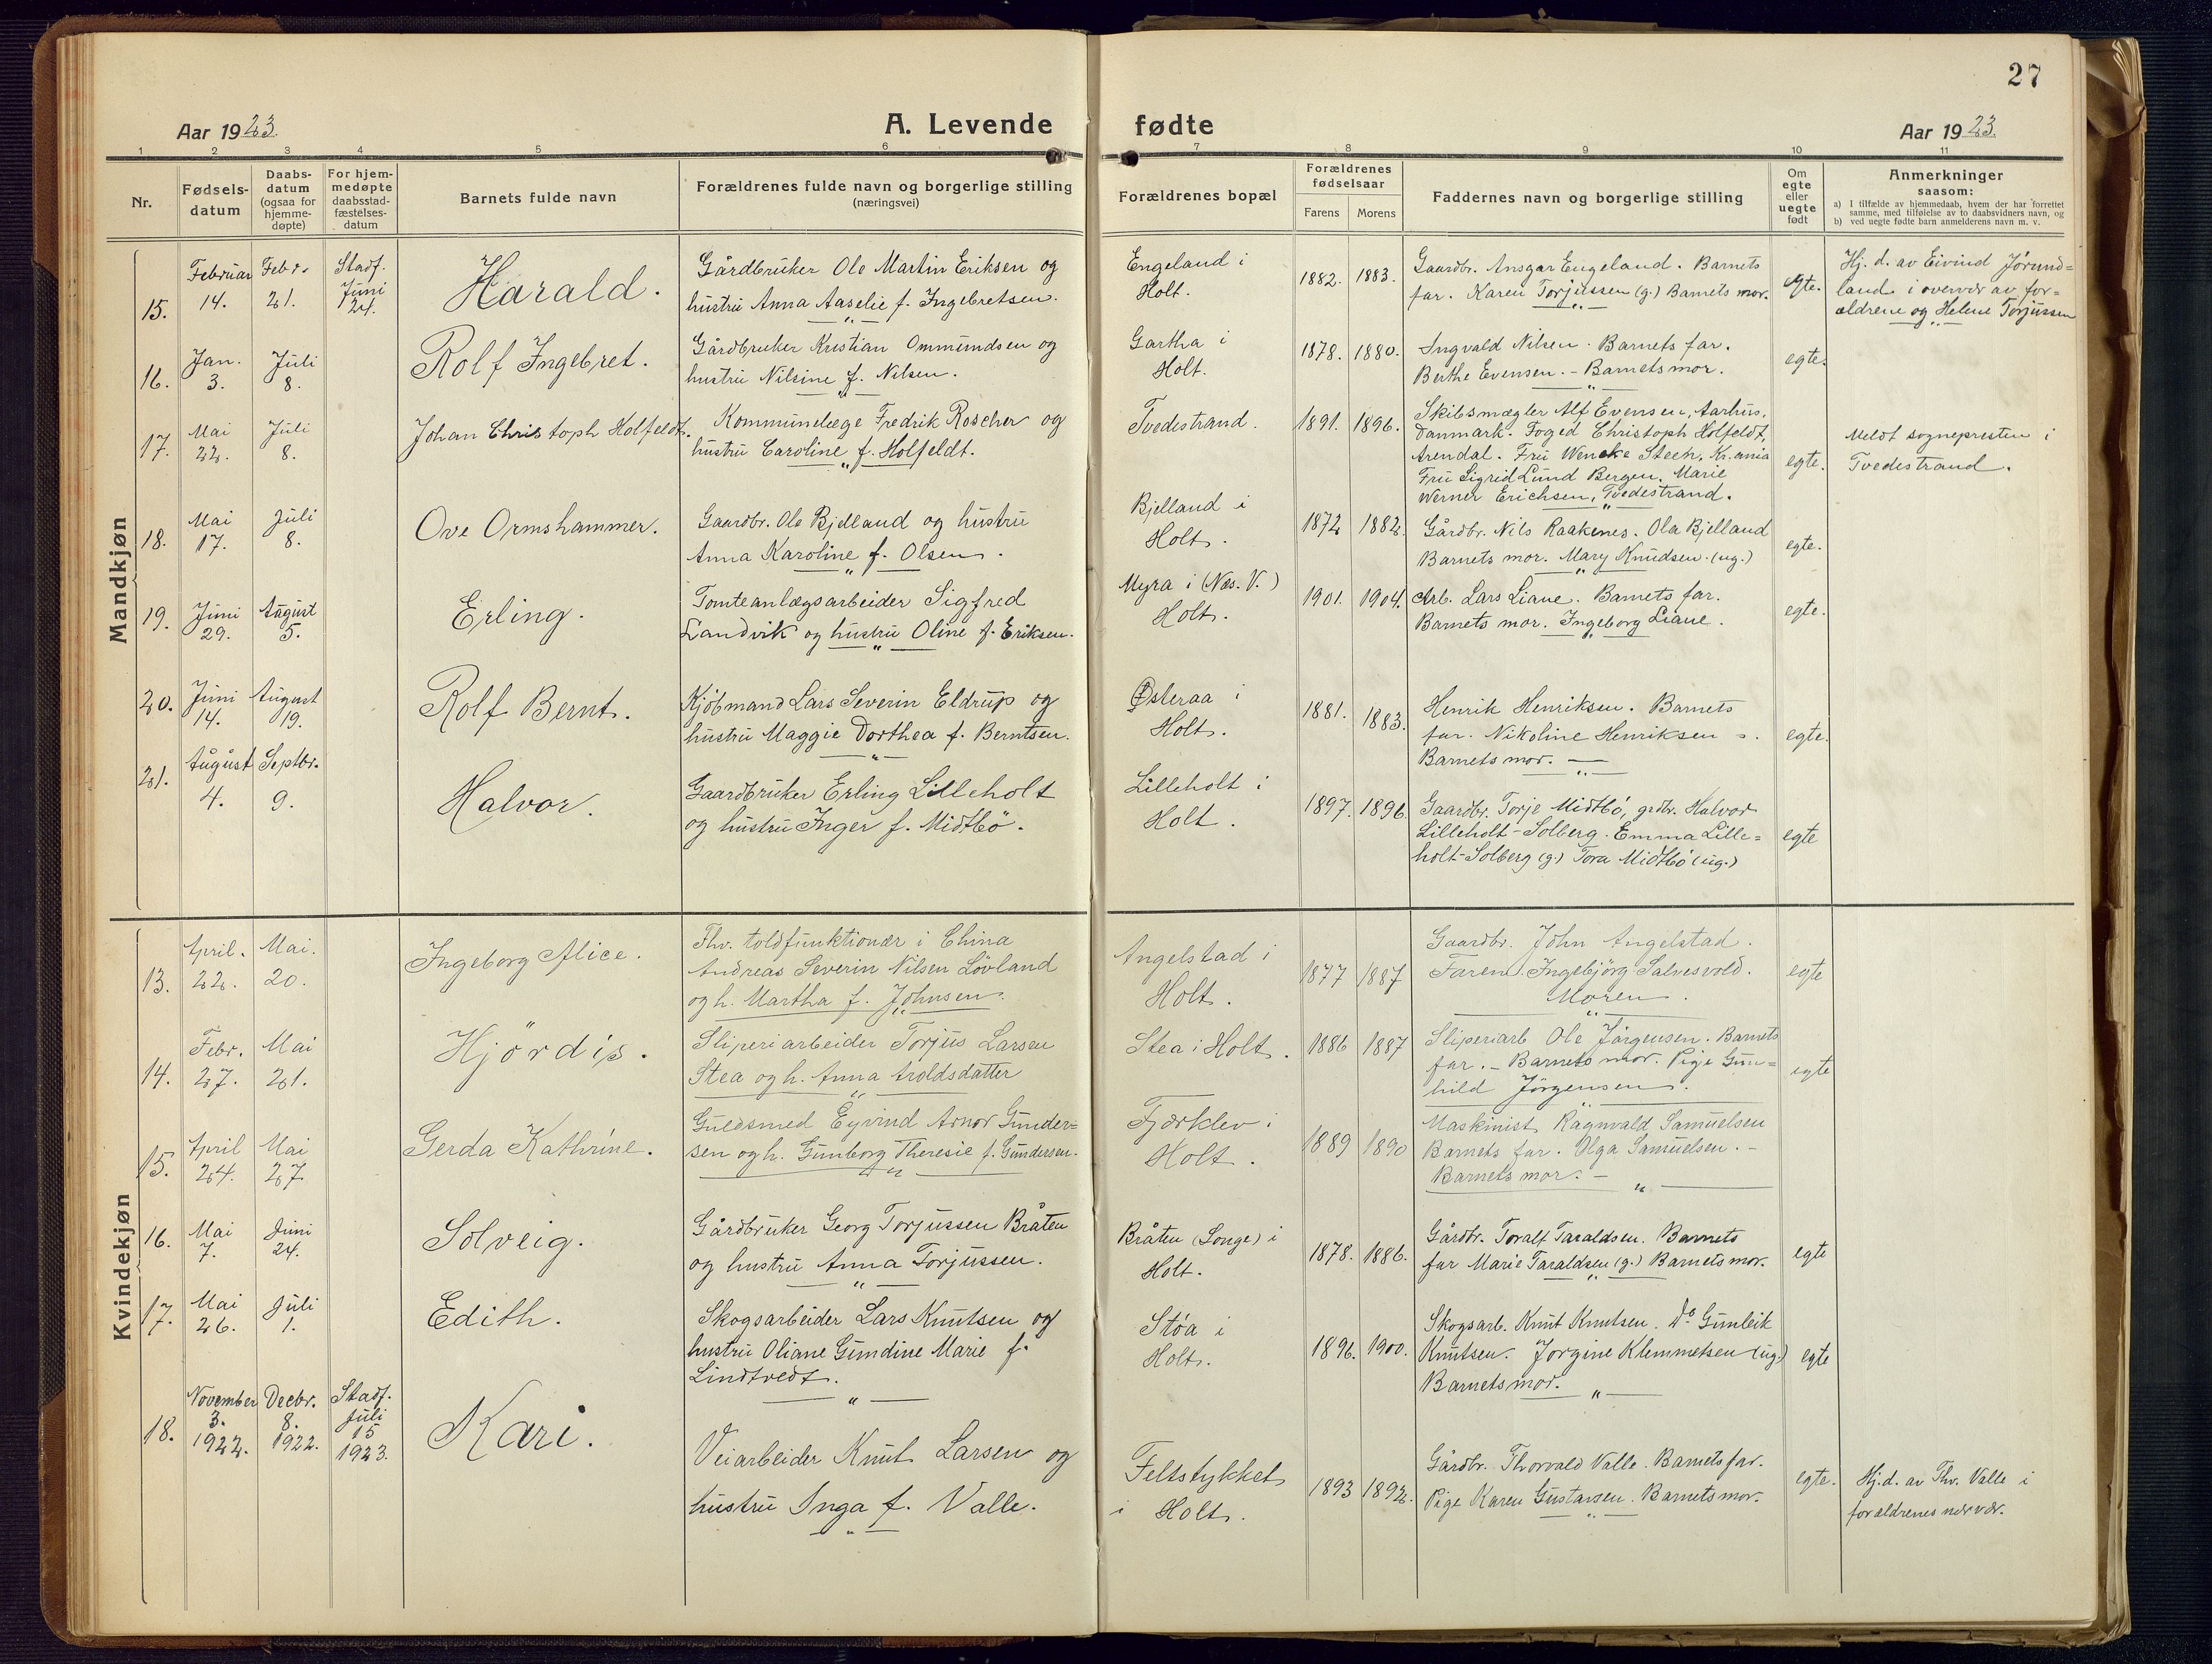 27
Aar 1923.
A. Levende
fødte
Aar 1923.
1 2 3 4 5 6 7 8 9 10 11
Nr.
Fødsels-
datum
Daabs-
datum
(ogsaa for
hjemme-
døpte)
For hjem-
medøpte
daabsstad-
fæstelses-
datum
Barnets fulde navn
Forældrenes fulde navn og borgerlige stilling
(næringsvei)
Forældrenes bopæl
Forældrenes
fødselsaar
Farens Morens
Faddernes navn og borgerlige stilling
Om
egte
eller
uegte
født
Anmerkninger
saasom:
a) I tilfælde av hjemmedaab, hvem der har forrettet
samme, med tilføielse av to daabsvidners navn, og
b) ved uegte fødte barn anmelderens navn m. v.
Mandkjøn
15.
Februar
14.
Febr.
21.
Stadf.
Juni
24.
Harald.
Gårdbruker Ole Martin Eriksen og
hustru Anna Aaselie f. Ingebretsen.
Engeland i
Holt.
1882. 1883.
Gaardbr. Ansgar Engeland. Barnets
far. Karen Torjussen (g.) Barnets mor.
egte.
Hj. d. av Eivind Jørund=
land i overvær av for=
ældrene og Helene Torjussen
16.
Jan.
3.
Juli
8.
Rolf Ingebret.
Gårdbruker Kristian Ommundsen og
hustru Nilsine f. Nilsen.
Gartha i
Holt.
1878. 1880.
Ingvald Nilsen. Barnets far.
Berthe Evensen. - Barnets mor.
egte.
17.
Mai
22.
Juli
8.
Johan Christoph Holfeldt.
Kommunelæge Fredrik Roscher og
hustru Caroline f. Holfeldt.
Tvedestrand.
1891. 1896.
Skibsmægler Alf Evensen, Aarhus,
Danmark. Foged Christoph Holfeldt,
Arendal. Fru Wencke Steen, Kr.ania
Fru Sigrid Lund Bergen. Marie
Werner Erichsen, Tvedestrand.
egte.
Meldt sognepresten i
Tvedestrand.
18.
Mai
17.
Juli
8.
Ove Ormshammer.
Gaardbr. Ole Bjelland og hustru
Anna Karoline f. Olsen.
Bjelland i
Holt.
1872 1882.
Gårdbr. Nils Raakenes. Ola Bjelland
Barnets mor. Mary Knudsen. (ug.)
egte.
19.
Juni
29.
August
5.
Erling.
Tomteanlægsarbeider Sigfred
Landvik og hustru Oline f. Eriksen.
Myra i (Næs. V.)
Holt.
1901. 1904.
Arb. Lars Liane. Barnets far.
Barnets mor. Ingeborg Liane.
egte.
20.
Juni
14.
August
19.
Rolf Bernt.
Kjøbmand Lars Severin Eldrup og
hustru Maggie Dorthea f. Berntsen.
Østeraa i
Holt.
1881. 1883.
Henrik Henriksen. Barnets
far. Nikoline Henriksen
Barnets mor.
egte.
21.
August
4.
Septbr.
9.
Halvor.
Gaardbruker Erling Lilleholt
og hustru Inger f. Midtbö.
Lilleholt i
Holt.
1897. 1896.
Gaardbr. Torje Midtbö, grdbr. Halvor
Lilleholt-Solberg. Emma Lille=
holt-Solberg (g.) Tora Midtbö (ug.)
egte
Kvindekjøn
13.
April.
22.
Mai.
20.
Ingeborg Alice.
Fhv. toldfunktionær i China
Andreas Severin Nilsen Lövland
og h. Martha f. Johnsen.
Angelstad i
Holt.
1877 1887
Gaardbr. John Angelstad.
Faren. Ingebjörg Salvesvold.
Moren.
egte
14.
Febr.
27.
Mai
21.
Hjördis.
Sliperiarbeider Torjus Larsen
Stea og h. Anna Aroldsdatter
Stea i Holt.
1886 1887
Sliperiarb Ole Jörgensen. Barnets
far. - Barnets mor. Pige Gun=
hild Jörgensen.
egte
15.
April
24.
Mai
27
Gerda Kathrine.
Guldsmed Eyvind Arnor Gunder=
sen og h. Gunborg Theresie f. Gundersen.
Fjærklev i
Holt.
1889 1890
Maskinist Ragnvald Samuelsen
Barnets far. Olga Samuelsen. -
Barnets mor. -
16.
Mai
7.
Juni
24.
Solveig.
Gårdbruker Georg Torjussen Bråten
og hustru Anna Torjussen.
Bråten (Songe) i
Holt.
1878. 1886.
Gårdbr. Toralf Taraldsen. Barnets
far Marie Taraldsen (g.) Barnets mor.
egte
17.
Mai
26.
Juli
1.
Edith.
Skogsarbeider Lars Knutsen og
hustru Oliane Gundine Marie f.
Lindtvedt.
Støa i
Holt.
1896. 1900.
Skogsarb. Knut Knutsen. Do Gunleik
Knutsen. Jorgine Klemmetsen (ug.)
Barnets mor.
egte
18.
November
3.
1922.
Decbr.
8.
1922.
Stadf.
Juli
15
1923.
Kari.
Veiarbeider Knut Larsen og
hustru Inga f. Valle.
Feltstykket
i Holt.
1893 1892.
Gårdbr. Thorvald Valle. Barnets far.
Pige Karen Gustavsen. Barnets mor.
egte.
Hj.d. av Thv. Valle i
forældrenes nærvær.